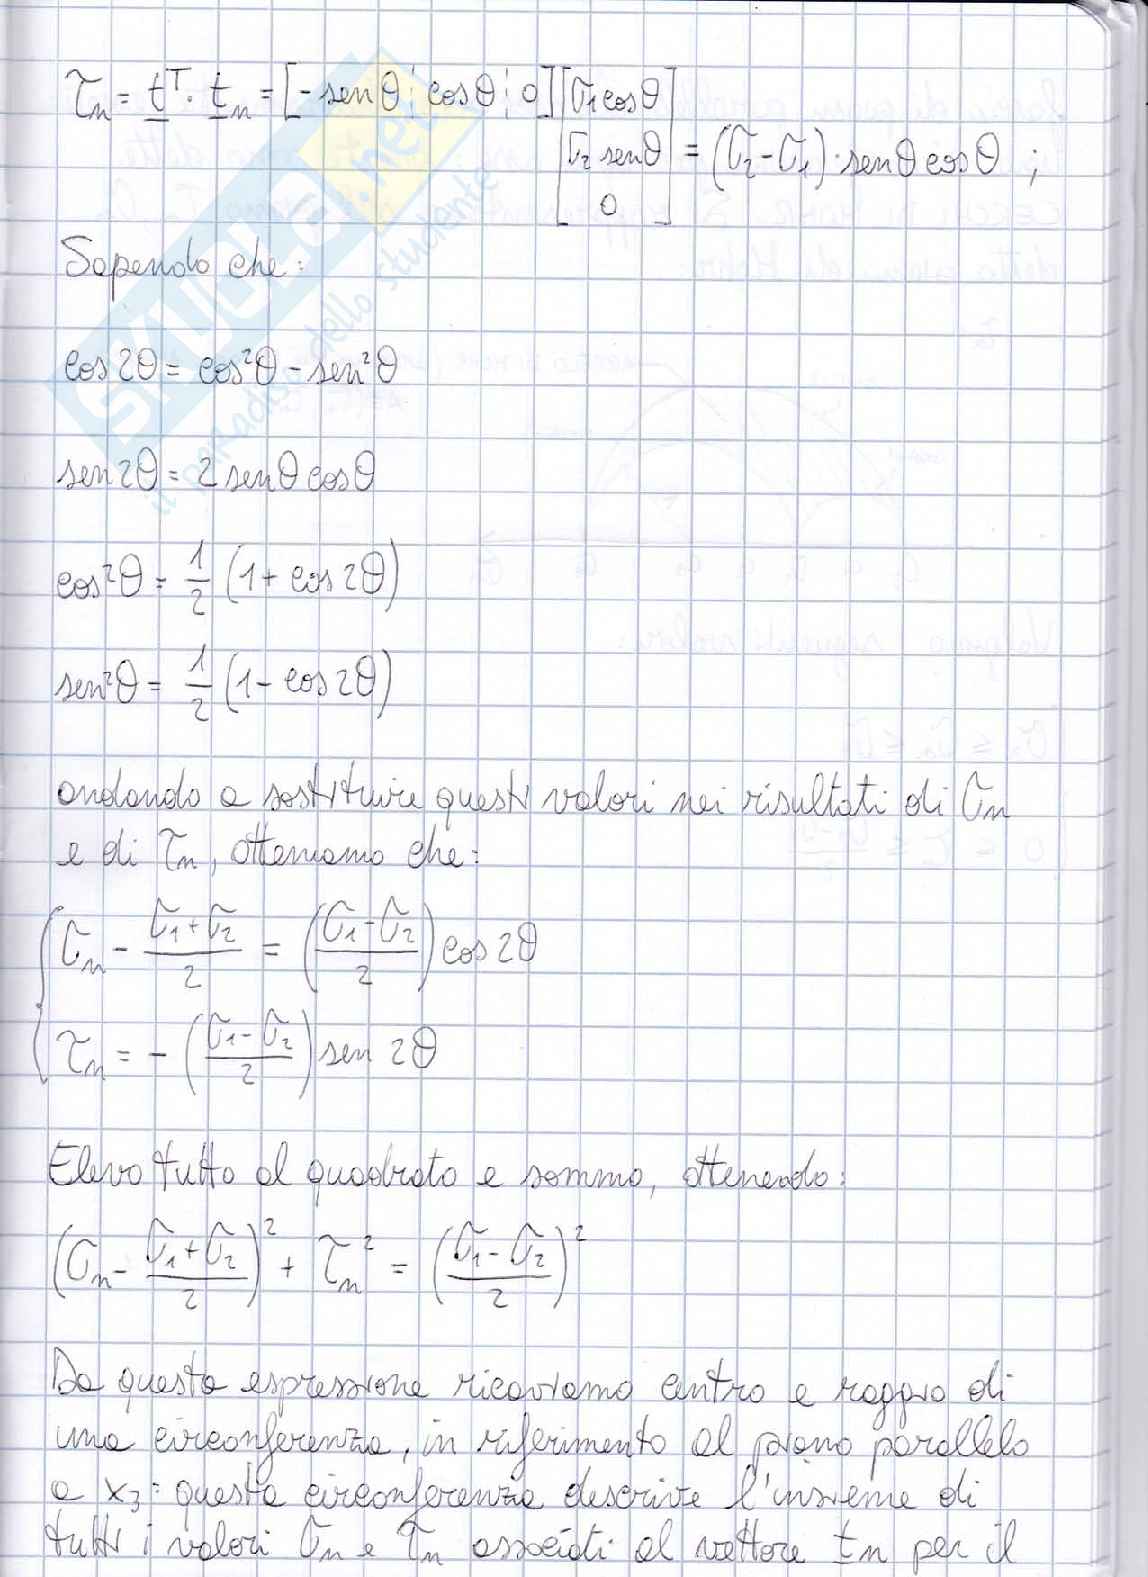 τn = t^T · tn = [-senθ ¦ cosθ ¦ 0] [σ1 cosθ
σ2 senθ = (σ2-σ1)·senθ cosθ ;
0]
Sapendo che:
cos2θ = cos²θ - sen²θ
sen2θ = 2 senθ cosθ
cos²θ = 1/2 (1 + cos2θ)
sen²θ = 1/2 (1 - cos2θ)
andando a sostituire questi valori nei risultati di σn
e di τn, otteniamo che:
{ σn - (σ1+σ2)/2 = ((σ1-σ2)/2) cos2θ
τn = - ((σ1-σ2)/2) sen 2θ
Elevo tutto al quadrato e sommo, ottenendo:
(σn - (σ1+σ2)/2)² + τn² = ((σ1-σ2)/2)²
Da questa espressione ricaviamo centro e raggio di
una circonferenza, in riferimento al piano parallelo
a x3: questa circonferenza descrive l'insieme di
tutti i valori σn e τn associati al vettore tn per il
SKUOLA.net
il paradiso dello studente